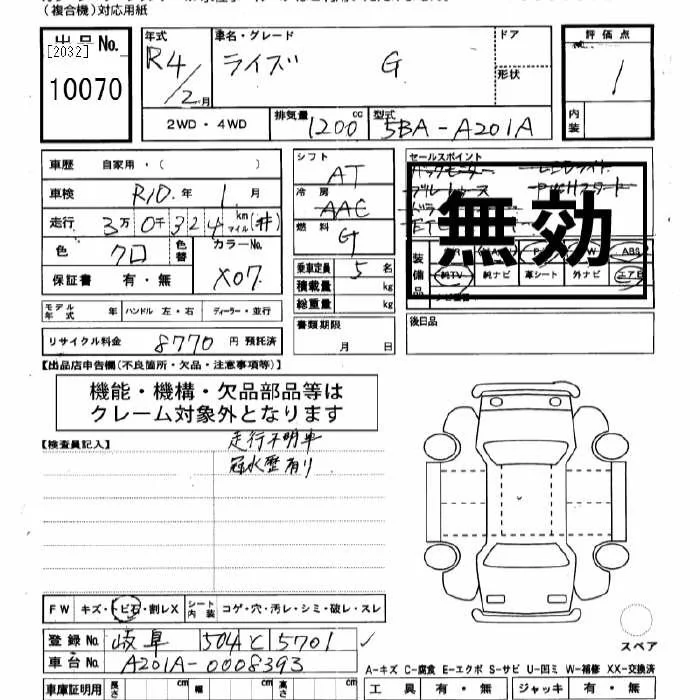 （複合機）対応用紙
出品 No.
[2032]
10070
年式
R4/2月
車名・グレード
ライズ G
ドア
形状
評価点
1
内装
2WD・4WD
排気量 1200 cc
型式 5BA-A201A
車歴 自家用・（ ）
車検 R10年 1月
走行 3万0千324 km マイル (#)
色 クロ
色替
カラーNo. X07
保証書 有・無
シフト AT
冷房 AAC
燃料 G
乗車定員 5 名
積載量 kg
総重量 kg
書類期限
月 日
セールスポイント
無効
装備品
ABS
純TV 純ナビ 革シート 外ナビ エアB
後日品
モデル年式 年 ハンドル 左・右 ディーラー・並行
リサイクル料金 8770 円 預託済
【出品店申告欄（不良箇所・欠品・注意事項等）】
機能・機構・欠品部品等は
クレーム対象外となります
【検査員記入】
走行不明車
冠水歴有り
FW キズ・トビ石・割レX シート内装 コゲ・穴・汚レ・シミ・破レ・スレ
登録No. 岐阜 504 と 5701
車台No. A201A-0008393
車庫証明用 長さ cm 幅 cm 高さ cm
スペア
A-キズ C-腐食 E-エクボ S-サビ U-凹ミ W-補修 XX-交換済
工具 有・無 ジャッキ 有・無